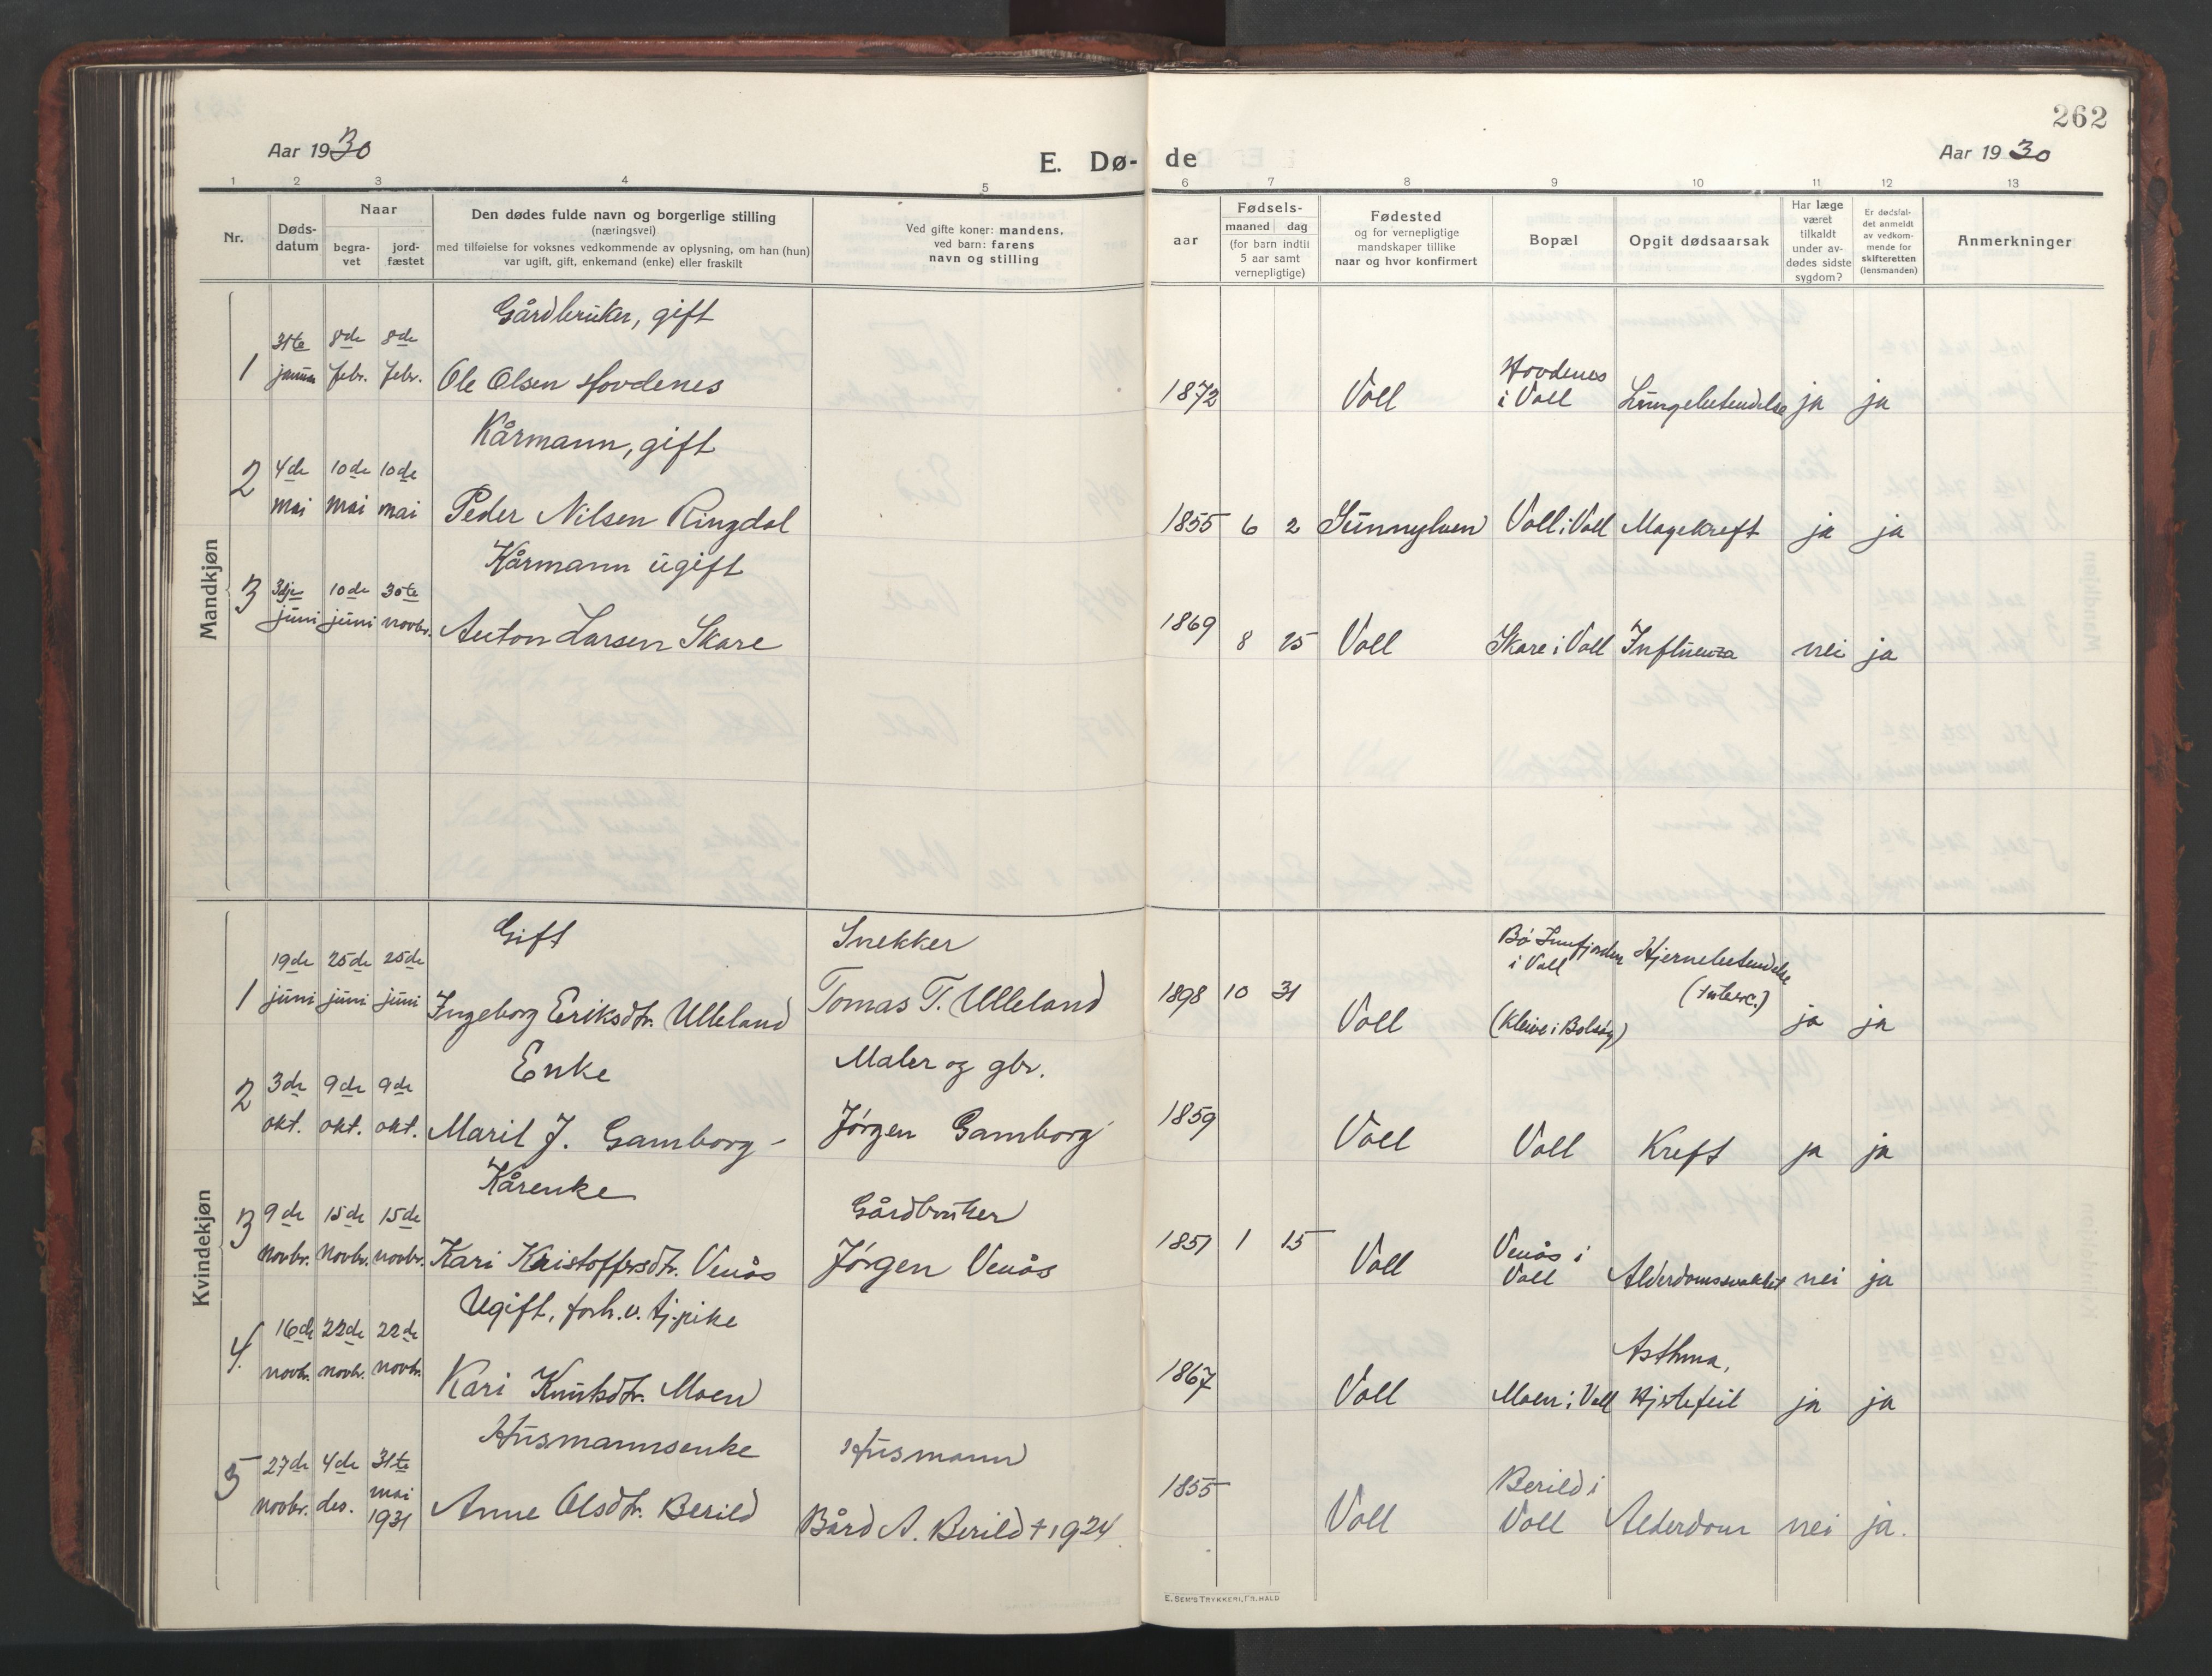 262
Aar 1930
E. Dø- de
Aar 1930
1 2 3 4 5 6 7 8 9 10 11 12 13
Nr.
Døds-
datum
Naar
begra-
vet
jord-
fæstet
Den dødes fulde navn og borgerlige stilling
(næringsvei)
med tilføielse for voksnes vedkommende av oplysning, om han (hun)
var ugift, gift, enkemand (enke) eller fraskilt
Ved gifte koner: mandens,
ved barn: farens
navn og stilling
aar
Fødsels-
maaned dag
(for barn indtil
5 aar samt
vernepligtige)
Fødested
og for vernepligtige
mandskaper tillike
naar og hvor konfirmert
Bopæl
Opgit dødsaarsak
Har læge
været
tilkaldt
under av-
dødes sidste
sygdom?
Er dødsfal-
det anmeldt
av vedkom-
mende for
skifteretten
(lensmanden)
Anmerkninger
Mandkjøn
Gårdbruker, gift
31te 8de 8de
1 januar febr. febr. Ole Olsen Hovdenes
Hovdenes
1872 Voll i Voll Lungebetendelse ja ja
Kårmann, gift
4de 10de 10de
2 mai mai mai Peder Nilsen Ringdal
1855 6 2 Sunnylven Voll i Voll Magekreft ja ja
Kårmann ugift
3dje 10de 30te
3 juni juni novbr. Anton Larsen Skare
1869 8 25 Voll Skare i Voll Influenza nei ja
Kvindekjøn
Gift Snekker
19de 25de 25de
1 juni juni juni Ingeborg Eriksdtr. Ulleland Tomas T. Ulleland
Bø Innfjorden
i Voll
Hjernebetendelse
1898 10 31 Voll (Kleive i Bolsøy) ja ja
Enke Maler og gbr.
3de 9de 9de
2 okt. okt. okt. Marit J. Gamborg - Jørgen Gamborg
1859 Voll Voll Kreft ja ja
Kårenke Gårdbruker
9de 15de 15de
3 novbr. novbr. novbr. Kari Kristoffersdtr. Venås Jørgen Venås
Venås i
1851 1 15 Voll Voll Alderdomssvakhet nei ja
Ugift, forh.v. tj.pike
16de 22de 22de
4. novbr. novbr. novbr. Kari Knutsdtr. Moen
Asthma,
1867 Voll Moen i Voll Hjertefeil ja ja
Husmannsenke Husmann
27de 4de 31te
5 novbr. des. mai
1931 Anne Olsdtr. Berild Bård A. Berild † 1924.
Berild i
1855 Voll Voll Alderdom nei ja.
E. SEM'S TRYKKERI, FR. HALD